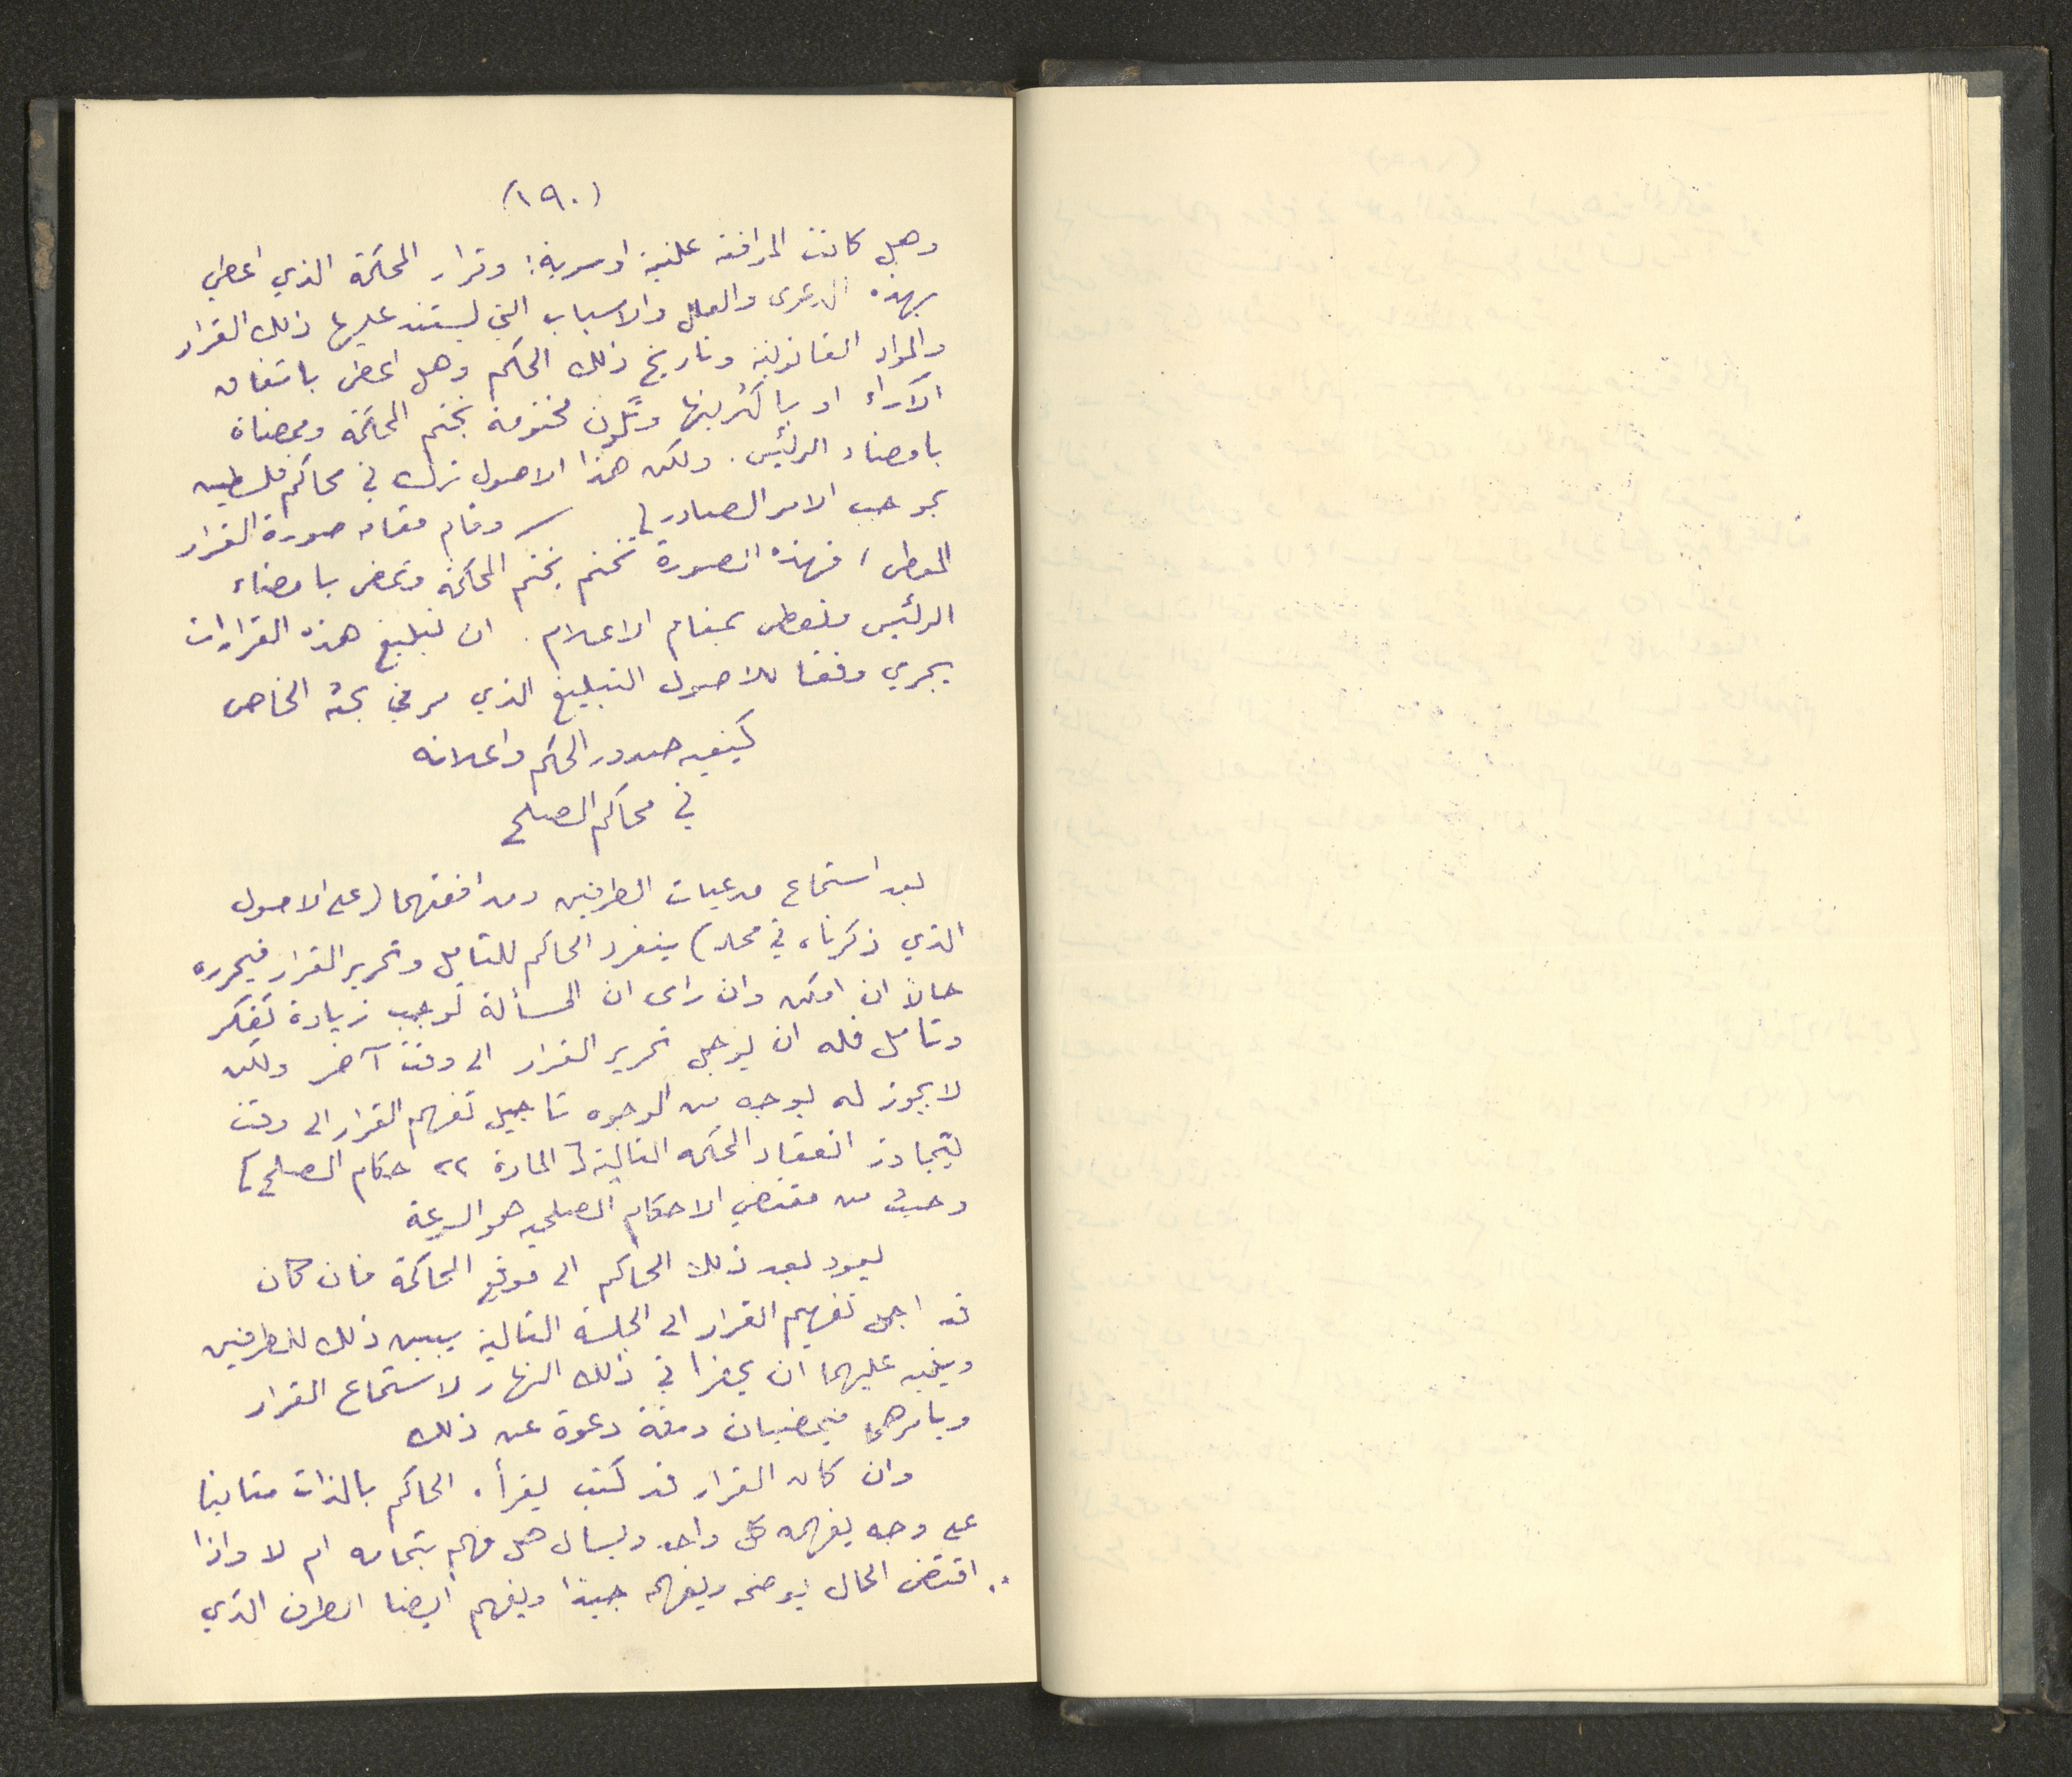 (١٩٠)
وهل كانت المرافعة علنية او سرية: وقرار المحكمة الذي اعطي
بهذه الدعوى والعلل والاسباب التي يستند عليها ذلك القرار
والمواد القانونية وتاريخ ذلك الحكم وهل اعطى باتفاق
الآراء او باكثريتها وتكون مختومة بختم المحكمة وممضاة
بامضاء الرئيس. ولكن هذا الاصول ترك في محاكم فلسطين
بموجب الامر الصادر ( وقام مقامه صورة القرار
المعطى) فهذه الصورة تختم بختم المحكمة وتمضى بامضاء
الرئيس فتعطى بمقام الاعلام. ان تبليغ هذه القرارات
يجري وفقا للاصول التبليغ الذي مر في بحثه الخاص
كيفيه صدور الحكم واعلانه
في محاكم الصلح
بعد استماع مدعيات الطرفين ومدافعتهما (على الاصول
الذي ذكرناه في محله) ينفرد الحاكم للتأمل وتحرير القرار فيحرره
حالاً ان امكن وان راى ان المسألة توجب زيادة تفكر
وتامل فله ان يؤجل تحرير القرار الى وقت آخر ولكن
لا يجوز له بوجه من الوجوه تاجيل تفهيم القرار الى وقت
يتجاوز انعقاد المحكمه التالية [المادة ٢٢ حكام الصلح]
وحيث من مقتضي الاحكام الصلحيه هو السرعة
يعود بعد ذلك الحاكم الى موقع المحاكمة فان كان
قد اجل تفهيم القرار الى الجلسة التالية يبين ذلك للطرفين
وينبه عليهما ان يحضرا في ذلك النهار لاستماع القرار
ويامرهما فيمضيان ورقة دعوة عن ذلك
وان كان القرار قد كتب يقرأه الحاكم بالذات متانيا
على وجه يفهمه كل واحد ويسال هل فهم بتمامه ام لا واذا
اقتضى الحال يوضحه ويفهمه جيدًا ويفهم ايضا الطرف الذي